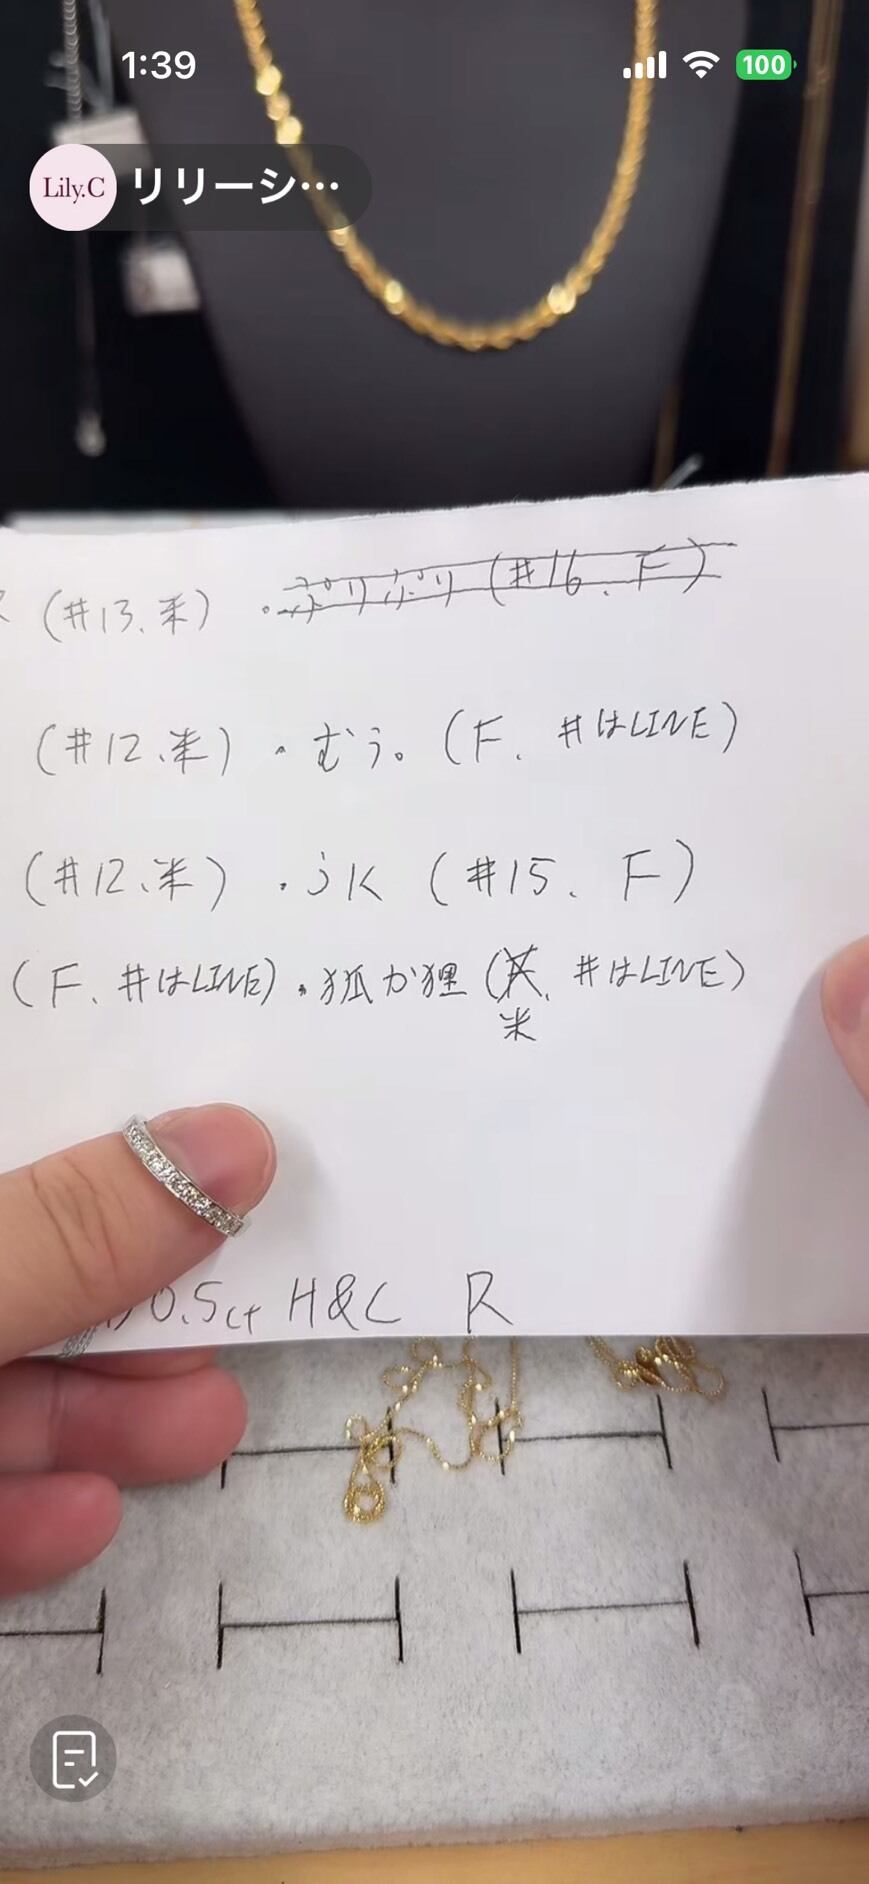 1:39
100
Lily.C リリーシ…
(#13、米) ・ぷりぷり (#16、F)
(#12、米) ・むう。(F、#はLINE)
(#12、米) ・うK (#15、F)
(F、#はLINE) ・狐か狸 (英、#はLINE)
米
0.5ct H&C R